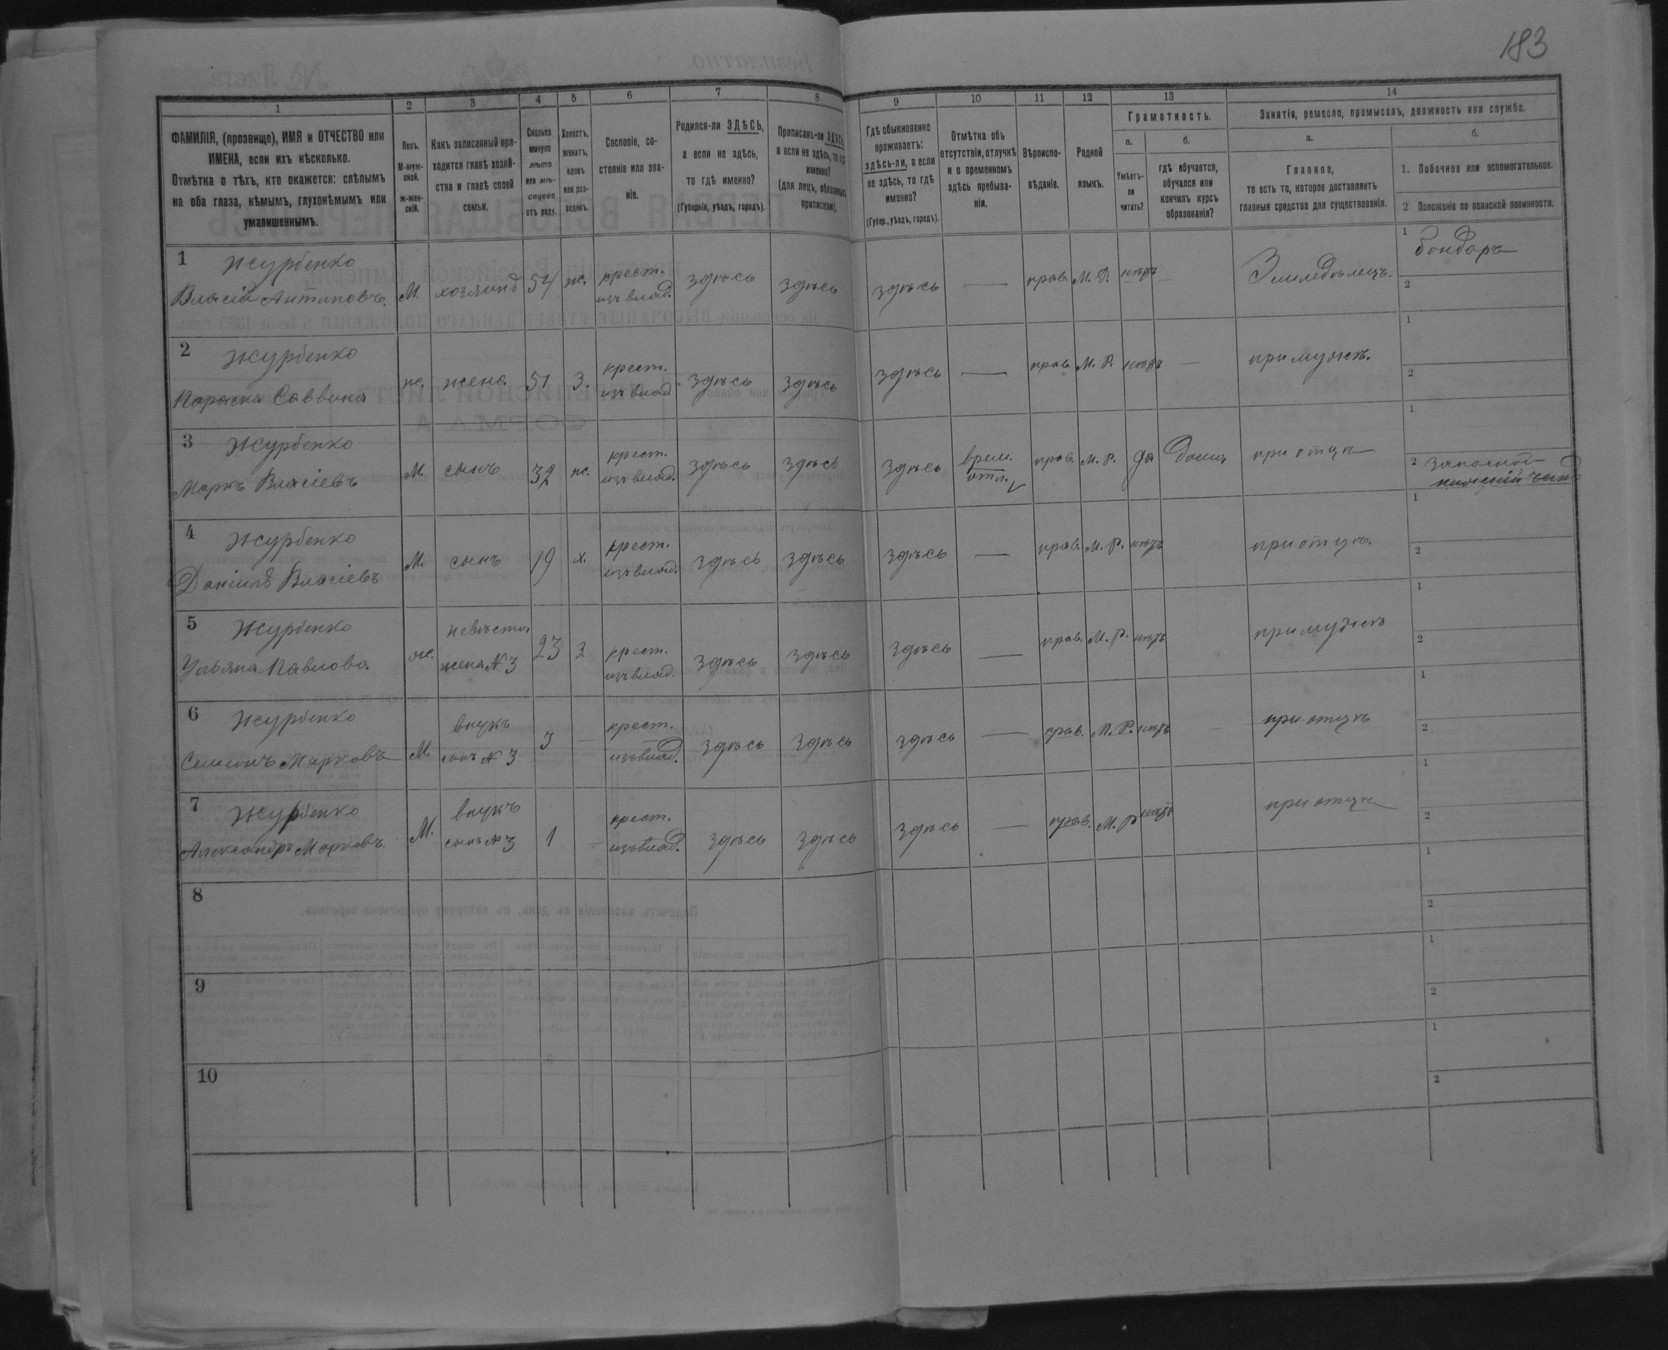 183
1 2 3 4 5 6 7 8 9 10 11 12 13 14
ФАМИЛІЯ, (прозвище), ИМЯ и ОТЧЕСТВО или
ИМЕНА, если ихъ нѣсколько.
Отмѣтка о тѣхъ, кто окажется: слѣпымъ
на оба глаза, нѣмымъ, глухонѣмымъ или
умалишеннымъ.
Полъ.
М-муж-
ской.
ж-жен-
скій.
Какъ записанный при-
ходится главѣ хозяй-
ства и главѣ своей
семьи.
Сколько
минуло
лѣтъ
или мѣ-
сяцевъ
отъ роду.
Холостъ,
женатъ,
вдовъ
или раз-
веденъ.
Сословіе, со-
стояніе или зва-
ніе.
Родился-ли ЗДѢСЬ,
а если не здѣсь,
то гдѣ именно?
(Губернія, уѣздъ, городъ).
Приписанъ-ли ЗДѢСЬ,
а если не здѣсь, то гдѣ
именно?
(для лицъ, обязанныхъ
припиской).
Гдѣ обыкновенно
проживаетъ:
здѣсь-ли, а если
не здѣсь, то гдѣ
именно?
(Губер., уѣздъ, городъ).
Отмѣтка объ
отсутствіи, отлучкѣ
и о временномъ
здѣсь пребыва-
ніи.
Вѣроиспо-
вѣданіе.
Родной
языкъ.
Грамотность.
а. б.
Умѣетъ-
ли
читать?
гдѣ обучается,
обучался или
кончилъ курсъ
образованія?
Занятіе, ремесло, промыселъ, должность или служба.
а. б.
Главное,
то есть то, которое доставляетъ
главныя средства для существованія.
1. Побочное или вспомогательное.
2 Положеніе по воинской повинности.
1 Журбенко крест. 1 бондарь
Власій Антиповъ М. хозяинъ 54 ж. изъ влад. здѣсь здѣсь здѣсь — прав. М. Р. нѣтъ — Земледѣлецъ. 2
2 Журбенко крест. 1
Параска Саввина ж. жена 51 з. изъ влад. здѣсь здѣсь здѣсь — прав. М. Р. нѣтъ — при мужѣ. 2
3 Журбенко крест. врем. 1
Маркъ Власіевъ М. сынъ 32 ж. изъ влад. здѣсь здѣсь здѣсь отл. прав. М. Р. да при отцѣ 2 запасной
нижній чинъ
4 Журбенко крест. 1
Даніилъ Власіевъ М. сынъ 19 х. изъ влад. здѣсь здѣсь здѣсь — прав. М. Р. нѣтъ при отцѣ. 2
5 Журбенко невѣстка крест. 1
Ульяна Павлова ж. жена № 3 23 з. изъ влад. здѣсь здѣсь здѣсь — прав. М. Р. нѣтъ при мужѣ 2
6 Журбенко внукъ крест. 1
Симеонъ Марковъ М. сынъ № 3 3 — изъ влад. здѣсь здѣсь здѣсь — прав. М. Р. нѣтъ при отцѣ 2
7 Журбенко внукъ крест. 1
Александръ Марковъ М. сынъ № 3 1 — изъ влад. здѣсь здѣсь здѣсь — прав. М. Р. нѣтъ при отцѣ 2
8 1
2
9 1
2
10 1
2